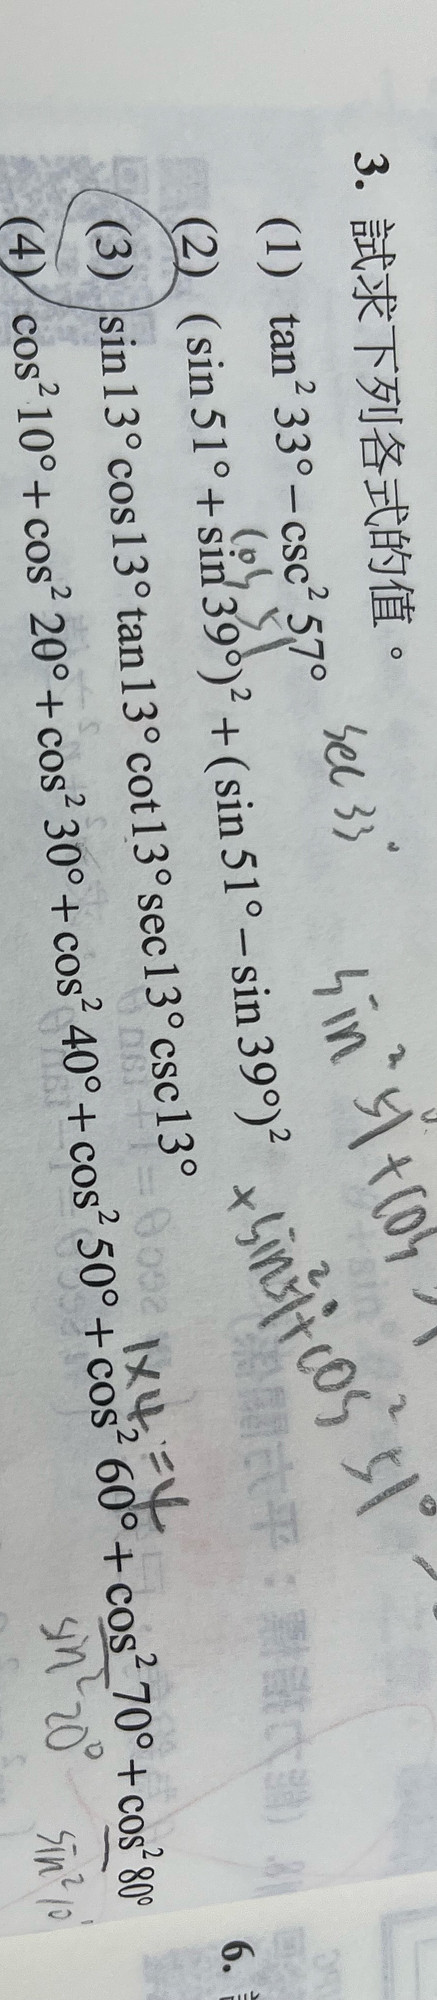 3. 試求下列各式的值。
(1) tan²33° − csc²57°
sec 33°
(2) (sin 51° + sin 39°)² + (sin 51° − sin 39°)²
cos 51
sin² 51 + cos
+ sin² 51° + cos² 51°
(3) sin 13° cos 13° tan 13° cot 13° sec 13° csc 13°
(4) cos²10° + cos²20° + cos²30° + cos²40° + cos²50° + cos²60° + cos²70° + cos²80°
1×4=4
sin²20°
sin²10°
6.